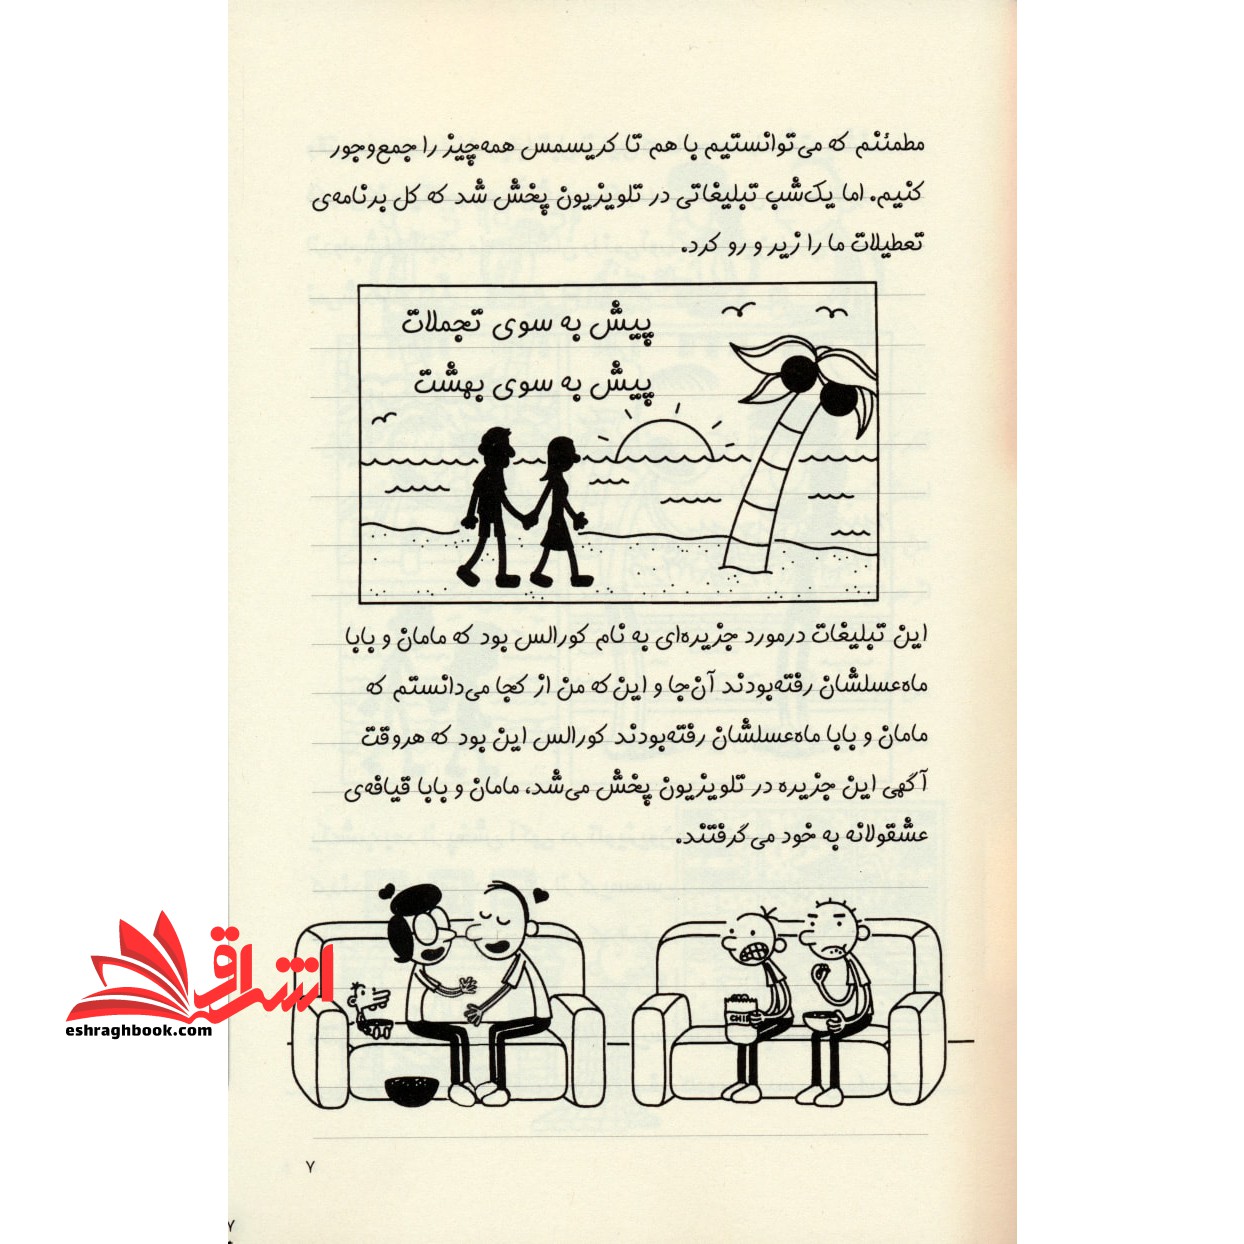 مطمئنم که می‌توانستیم با هم تا کریسمس همه‌چیز را جمع‌وجور
کنیم. اما یک‌شب تبلیغاتی در تلویزیون پخش شد که کل برنامه‌ی
تعطیلات ما را زیر و رو کرد.
پیش به سوی تجملات
پیش به سوی بهشت
این تبلیغات درمورد جزیره‌ای به نام کورالس بود که مامان و بابا
ماه‌عسلشان رفته‌بودند آن‌جا و این‌که من از کجا می‌دانستم که
مامان و بابا ماه‌عسلشان رفته‌بودند کورالس این بود که هروقت
آگهی این جزیره در تلویزیون پخش می‌شد، مامان و بابا قیافه‌ی
عشقولانه به خود می‌گرفتند.
CHIP
اشراق
eshraghbook.com
۷
۷